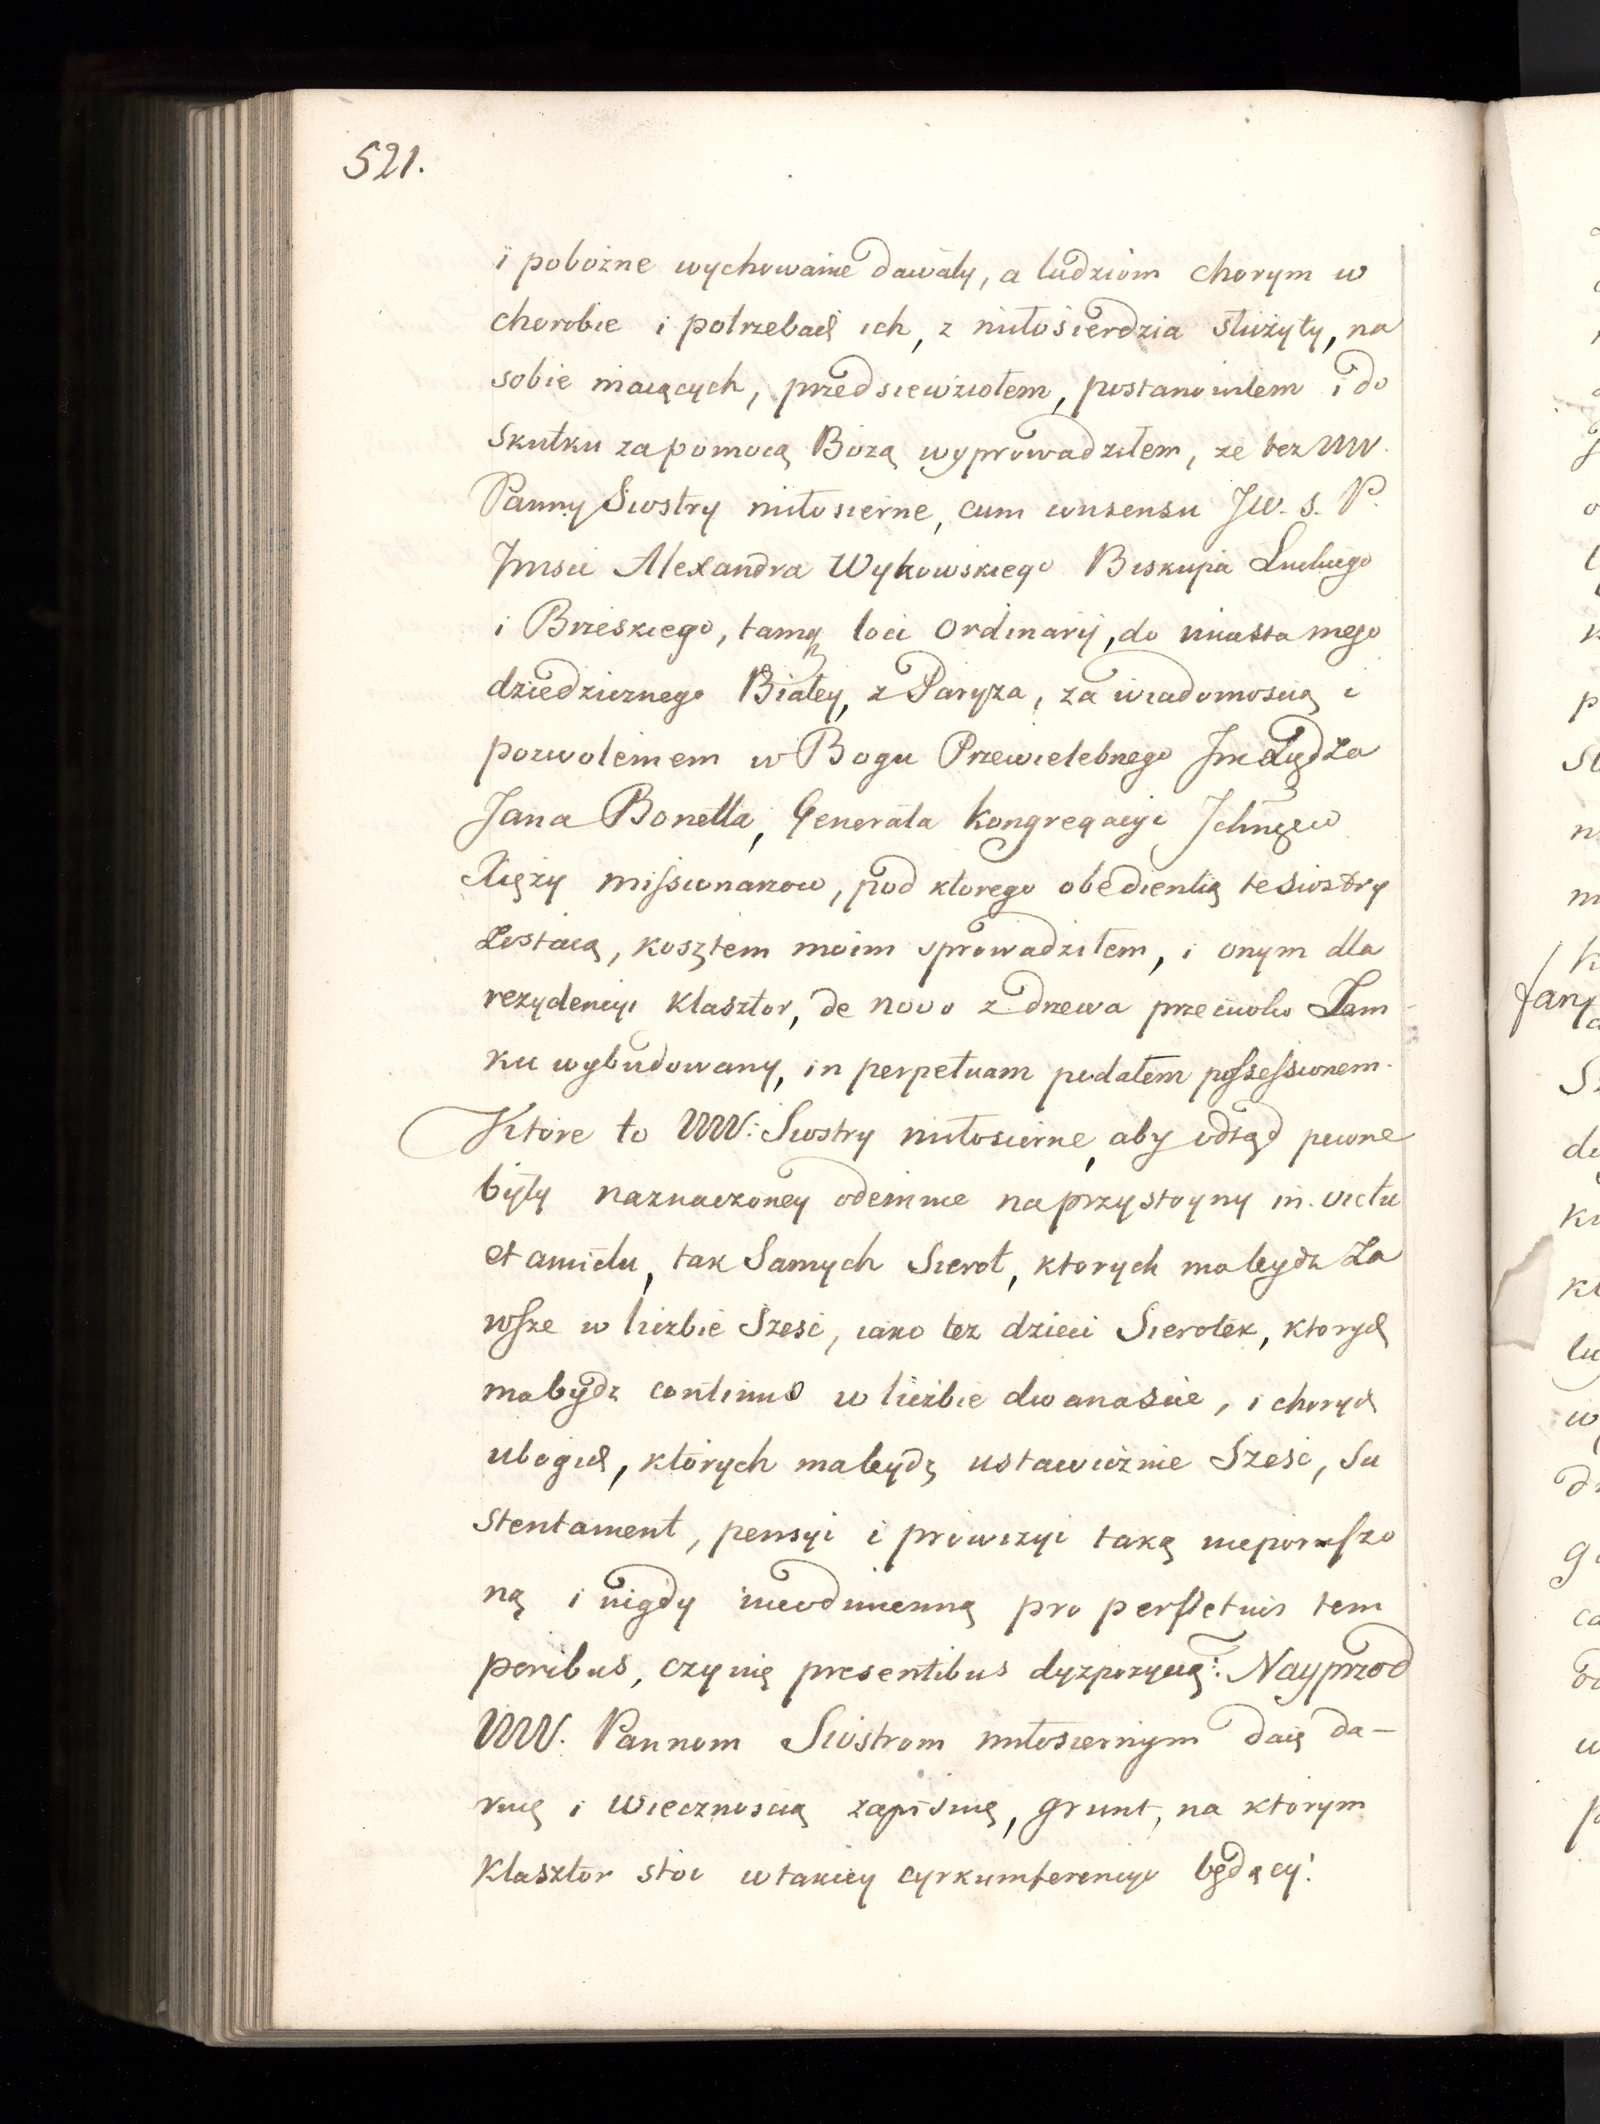 521.
i pobożne wychowanie dawały, a ludziom chorym w
chorobie i potrzebach ich, z miłosierdzia służyły, na
sobie maiących, przedsiewziołem, postanowilem i do
skutku za pomocą Bozą wyprowadziłem, ze tez WW.
Panny Siostry miłosierne, cum consensu JW. s. P.
Jmsci Alexandra Wykowskiego Biskupa Luckiego
i Brzeskiego, tamq loci Ordinarij, do miasta mego
dziedzicznego Białey, z Paryza, za wiadomoscią i
pozwoleniem w Bogu Przewielebnego Jm Xiędza
Jana Bonella, Generała Kongregacyi Ichmęciu
Xięży missionarzow, pod ktorego obedientią te siostry
zostaią, kosztem moim sprowadziłem, i onym dla
rezydencyi Klasztor, de novo z drzewa przeciwko Zam
ku wybudowany, in perpetuam podałem possessionem.
Ktore to WW: Siostry miłosierne, aby odtąd pewne
były naznaczoney odemnie na przystoyny in victu
et amictu, tak Samych Sierot, ktorych ma bydz Za
wsze w liczbie Szesc, iako tez dzieci Sierotek, ktorych
ma bydz continuo w liczbie dwanascie, i chorych
ubogich, ktorych ma bydz ustawicznie Szesc, Su
stentament, pensyi i prowizyi taką nieporuszo
ną i nigdy nieodmienną pro perpetuis tem
poribus, czynię presentibus dyzpozycią: Nayprzod
WW. Pannom Siostrom miłosiernym daię da-
ruię i wiecznoscią zapisuię, grunt, na ktorym
Klasztor stoi w takiey cyrkumferencyi będący: